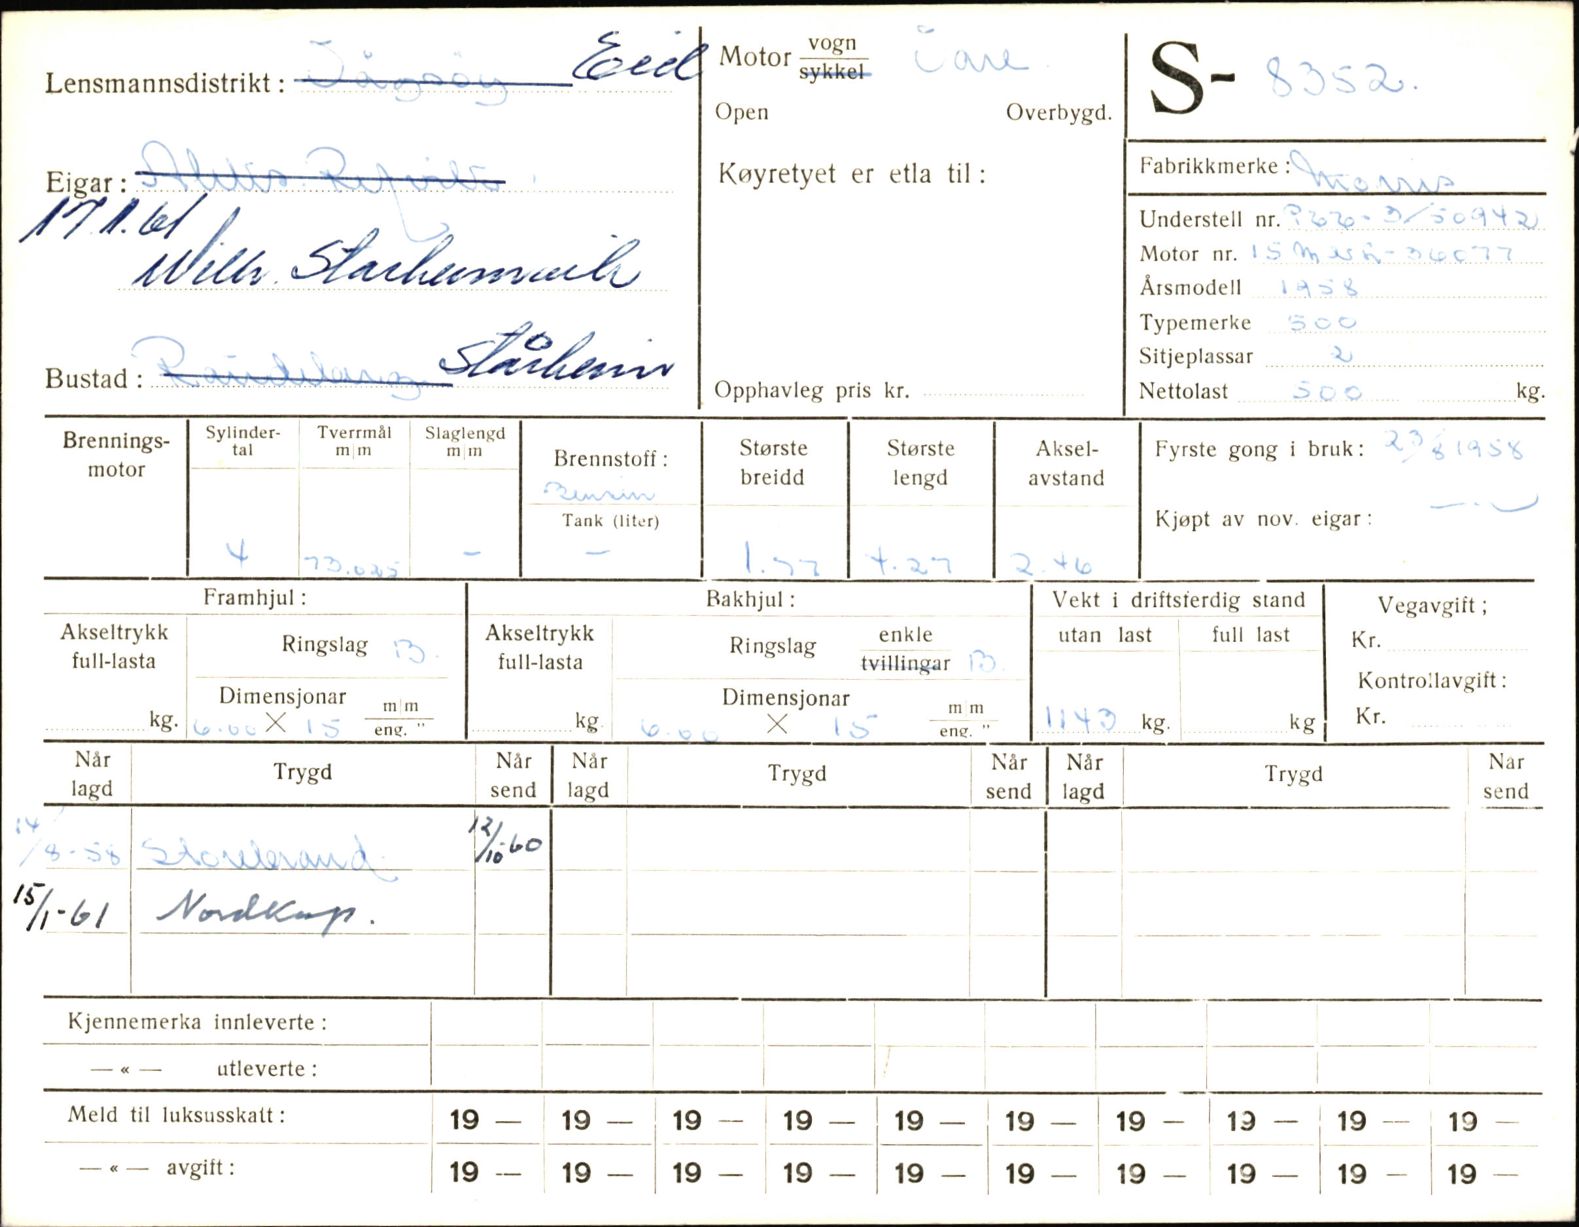 Lensmannsdistrikt: Vågsöy Eid
Motor vogn Vare
sykkel
S- 8352.
Open Overbygd.
Eigar:
17.1.61
Wilh. Starheimsvik
Køyretyet er etla til:
Bustad: Raudeberg Stårheim
Opphavleg pris kr.
Fabrikkmerke: Morris
Understell nr. 50942
Motor nr. 36077
Årsmodell 1958
Typemerke 500
Sitjeplassar 2
Nettolast 500 kg.
Brennings-
motor
Sylinder-
tal
4
Tverrmål
m/m
73.025
Slaglengd
m/m
-
Brennstoff:
Bensin
Tank (liter)
-
Største
breidd
1.77
Største
lengd
4.27
Aksel-
avstand
2.46
Fyrste gong i bruk: 23/8 1958
Kjøpt av nov. eigar: — " —
Framhjul:
Akseltrykk
full-lasta
kg.
Ringslag B.
Dimensjonar m/m
6.00 X 15 eng. "
Bakhjul:
Akseltrykk
full-lasta
kg.
Ringslag enkle
tvillingar B.
Dimensjonar m/m
6.00 X 15 eng. "
Vekt i driftsferdig stand
utan last full last
1143 kg. kg
Vegavgift;
Kr.
Kontrollavgift:
Kr.
Når
lagd Trygd Når
send Når
lagd Trygd Når
send Når
lagd Trygd Når
send
14/8-58 Storebrand 12/10-60
15/1-61 Nordkap.
Kjennemerka innleverte:
— « — utleverte:
Meld til luksusskatt: 19 — 19 — 19 — 19 — 19 — 19 — 19 — 19 — 19 — 19 —
— « — avgift: 19 — 19 — 19 — 19 — 19 — 19 — 19 — 19 — 19 — 19 —